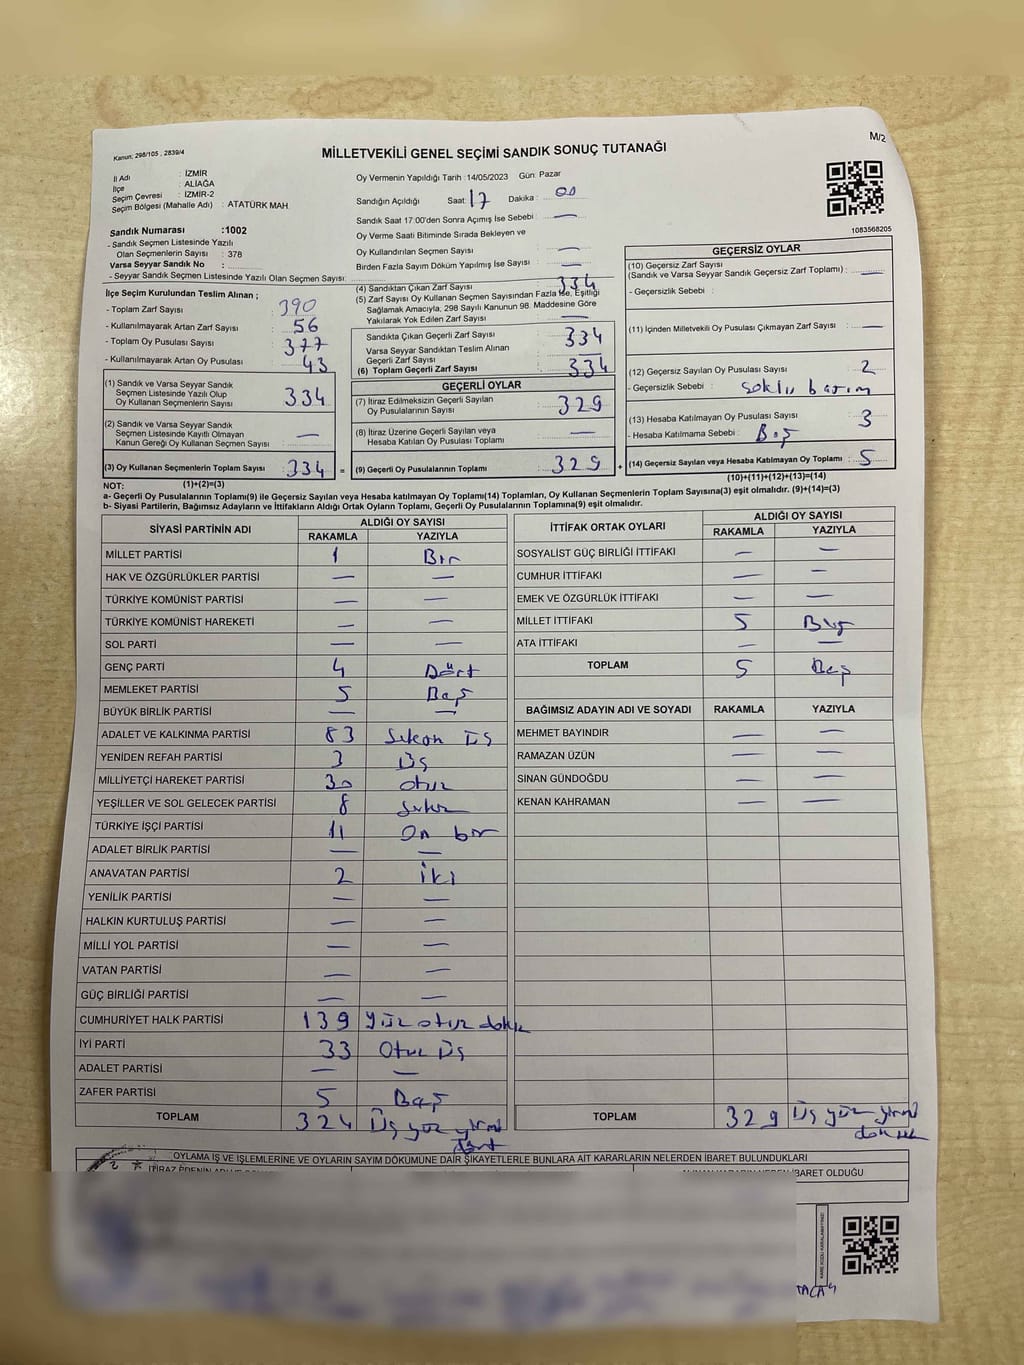 Kanun: 298/105 , 2839/4
M/2
MİLLETVEKİLİ GENEL SEÇİMİ SANDIK SONUÇ TUTANAĞI
İl Adı : İZMİR
İlçe : ALİAĞA
Seçim Çevresi : İZMİR-2
Seçim Bölgesi (Mahalle Adı) : ATATÜRK MAH.
Sandık Numarası :1002
- Sandık Seçmen Listesinde Yazılı
Olan Seçmenlerin Sayısı : 378
Varsa Seyyar Sandık No :
- Seyyar Sandık Seçmen Listesinde Yazılı Olan Seçmen Sayısı:
Oy Vermenin Yapıldığı Tarih :14/05/2023 Gün: Pazar
Sandığın Açıldığı Saat: 17 Dakika : 00
Sandık Saat 17:00'den Sonra Açımış İse Sebebi : —
Oy Verme Saati Bitiminde Sırada Bekleyen ve
Oy Kullandırılan Seçmen Sayısı : —
Birden Fazla Sayım Döküm Yapılmış İse Sayısı : —
1083568205
İlçe Seçim Kurulundan Teslim Alınan ;
- Toplam Zarf Sayısı : 390
- Kullanılmayarak Artan Zarf Sayısı : 56
- Toplam Oy Pusulası Sayısı : 377
- Kullanılmayarak Artan Oy Pusulası : 43
(1) Sandık ve Varsa Seyyar Sandık
Seçmen Listesinde Yazılı Olup
Oy Kullanan Seçmenlerin Sayısı : 334
(2) Sandık ve Varsa Seyyar Sandık
Seçmen Listesinde Kayıtlı Olmayan
Kanun Gereği Oy Kullanan Seçmen Sayısı : —
(3) Oy Kullanan Seçmenlerin Toplam Sayısı : 334 =
(4) Sandıktan Çıkan Zarf Sayısı : 334
(5) Zarf Sayısı Oy Kullanan Seçmen Sayısından Fazla İse, Eşitliği
Sağlamak Amacıyla, 298 Sayılı Kanunun 98. Maddesine Göre
Yakılarak Yok Edilen Zarf Sayısı : —
Sandıkta Çıkan Geçerli Zarf Sayısı : 334
Varsa Seyyar Sandıktan Teslim Alınan
Geçerli Zarf Sayısı : —
(6) Toplam Geçerli Zarf Sayısı : 334
GEÇERLİ OYLAR
(7) İtiraz Edilmeksizin Geçerli Sayılan
Oy Pusulalarının Sayısı : 329
(8) İtiraz Üzerine Geçerli Sayılan veya
Hesaba Katılan Oy Pusulası Toplamı : —
(9) Geçerli Oy Pusulalarının Toplamı : 329 +
GEÇERSİZ OYLAR
(10) Geçersiz Zarf Sayısı
(Sandık ve Varsa Seyyar Sandık Geçersiz Zarf Toplamı) : —
- Geçersizlik Sebebi :
(11) İçinden Milletvekili Oy Pusulası Çıkmayan Zarf Sayısı : —
(12) Geçersiz Sayılan Oy Pusulası Sayısı : 2
- Geçersizlik Sebebi :
(13) Hesaba Katılmayan Oy Pusulası Sayısı : 3
- Hesaba Katılmama Sebebi : Boş
(14) Geçersiz Sayılan veya Hesaba Katılmayan Oy Toplamı : 5
(10)+(11)+(12)+(13)=(14)
NOT: (1)+(2)=(3)
a- Geçerli Oy Pusulalarının Toplamı(9) ile Geçersiz Sayılan veya Hesaba katılmayan Oy Toplamı(14) Toplamları, Oy Kullanan Seçmenlerin Toplam Sayısına(3) eşit olmalıdır. (9)+(14)=(3)
b- Siyasi Partilerin, Bağımsız Adayların ve İttifakların Aldığı Ortak Oyların Toplamı, Geçerli Oy Pusulalarının Toplamına(9) eşit olmalıdır.
SİYASİ PARTİNİN ADI ALDIĞI OY SAYISI
RAKAMLA YAZIYLA
MİLLET PARTİSİ 1 Bir
HAK VE ÖZGÜRLÜKLER PARTİSİ — —
TÜRKİYE KOMÜNİST PARTİSİ — —
TÜRKİYE KOMÜNİST HAREKETİ — —
SOL PARTİ — —
GENÇ PARTİ 4 Dört
MEMLEKET PARTİSİ 5 Beş
BÜYÜK BİRLİK PARTİSİ — —
ADALET VE KALKINMA PARTİSİ 83 Seksen Üş
YENİDEN REFAH PARTİSİ 3 Üş
MİLLİYETÇİ HAREKET PARTİSİ 30 otuz
YEŞİLLER VE SOL GELECEK PARTİSİ 8 Sekiz
TÜRKİYE İŞÇİ PARTİSİ 11 On bir
ADALET BİRLİK PARTİSİ — —
ANAVATAN PARTİSİ 2 İki
YENİLİK PARTİSİ — —
HALKIN KURTULUŞ PARTİSİ — —
MİLLİ YOL PARTİSİ — —
VATAN PARTİSİ — —
GÜÇ BİRLİĞİ PARTİSİ — —
CUMHURİYET HALK PARTİSİ 139 yüz otuz dokuz
İYİ PARTİ 33 Otuz Üş
ADALET PARTİSİ — —
ZAFER PARTİSİ 5 Beş
TOPLAM 324 Üş yüz yirmi dört
İTTİFAK ORTAK OYLARI ALDIĞI OY SAYISI
RAKAMLA YAZIYLA
SOSYALİST GÜÇ BİRLİĞİ İTTİFAKI — —
CUMHUR İTTİFAKI — —
EMEK VE ÖZGÜRLÜK İTTİFAKI — —
MİLLET İTTİFAKI 5 Beş
ATA İTTİFAKI — —
TOPLAM 5 Beş
BAĞIMSIZ ADAYIN ADI VE SOYADI RAKAMLA YAZIYLA
MEHMET BAYINDIR — —
RAMAZAN ÜZÜN — —
SİNAN GÜNDOĞDU — —
KENAN KAHRAMAN — —
TOPLAM 329 Üş yüz yirmi dokuz
OYLAMA İŞ VE İŞLEMLERİNE VE OYLARIN SAYIM DÖKÜMÜNE DAİR ŞİKAYETLERLE BUNLARA AİT KARARLARIN NELERDEN İBARET BULUNDUKLARI